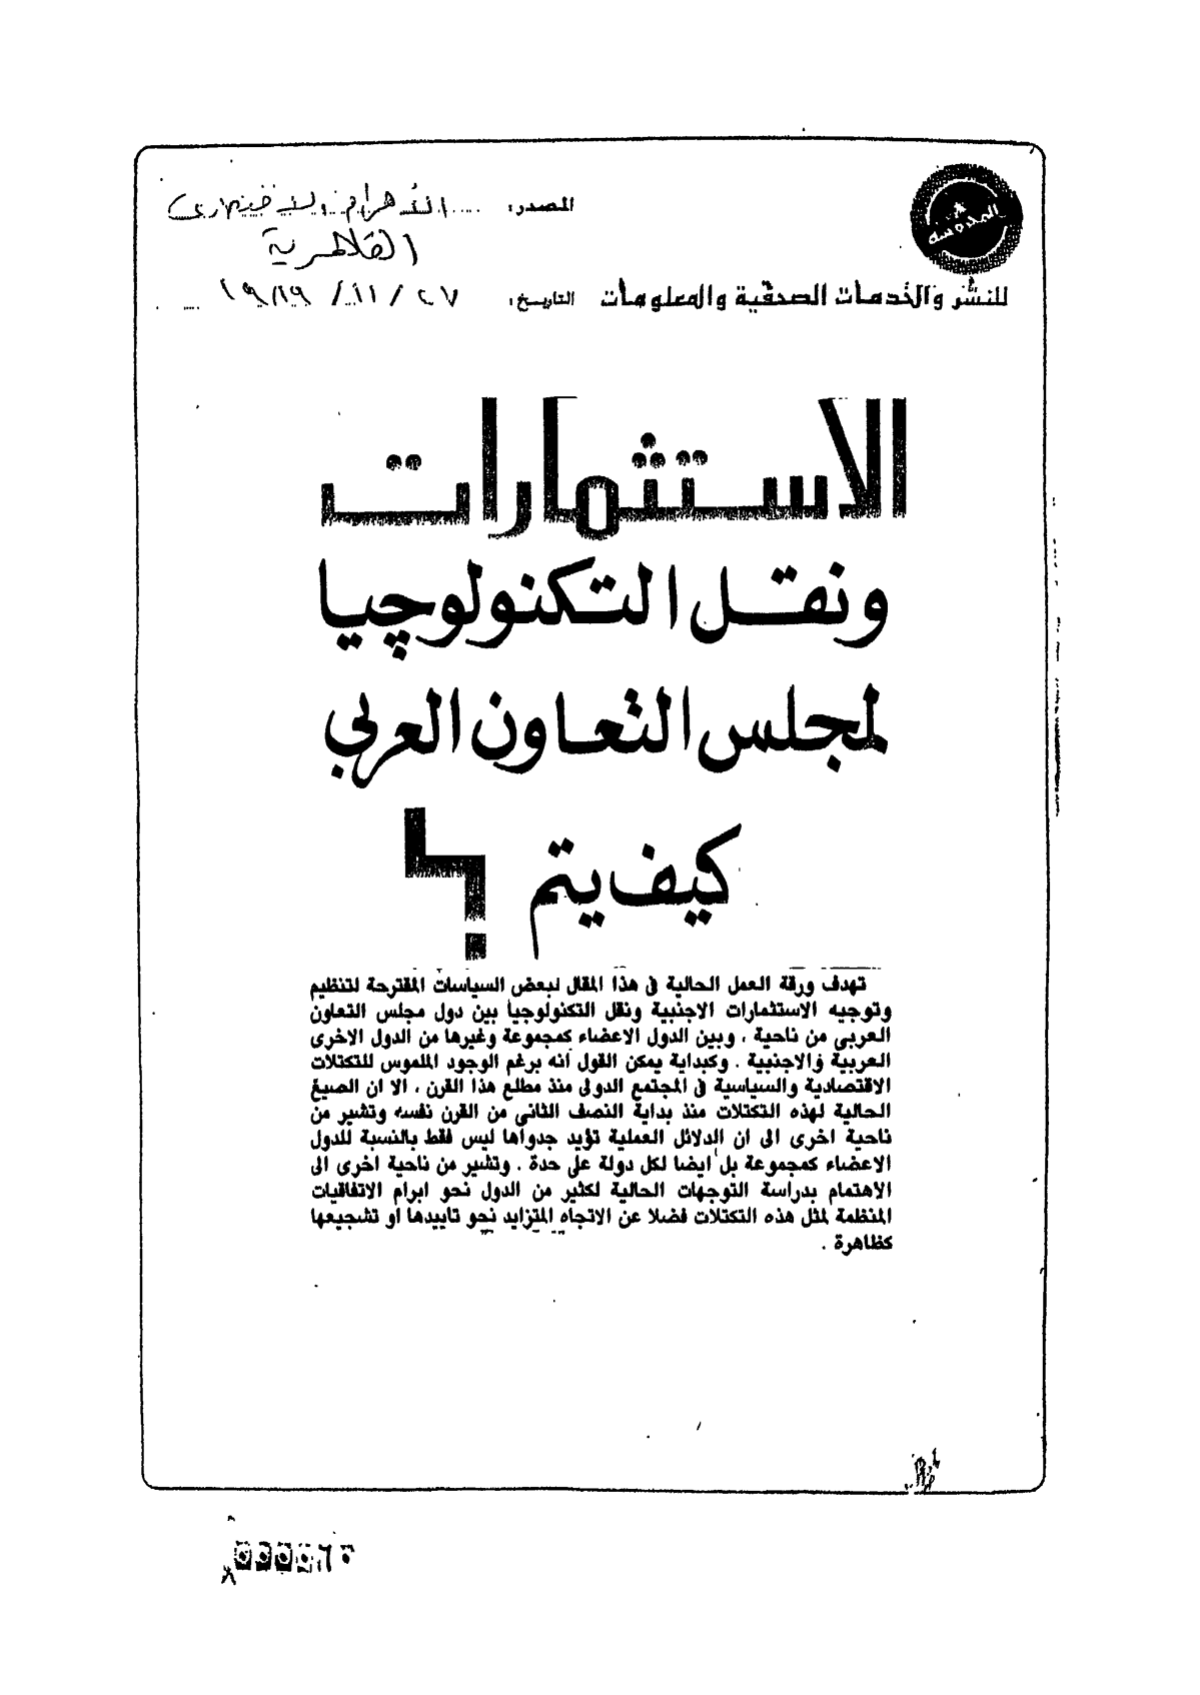 المحروسة
المصدر: الأهرام الاقتصادى
القاهرية
للنشر والخدمات الصحفية والمعلومات التاريخ: ٢٧ / ١١ / ١٩٨٩
الاستثمارات
ونقل التكنولوچيا
لمجلس التعاون العربي
كيف يتم ؟
تهدف ورقة العمل الحالية فى هذا المقال لبعض السياسات المقترحة لتنظيم
وتوجيه الاستثمارات الاجنبية ونقل التكنولوجيا بين دول مجلس التعاون
العربى من ناحية ، وبين الدول الاعضاء كمجموعة وغيرها من الدول الاخرى
العربية والاجنبية . وكبداية يمكن القول أنه برغم الوجود الملموس للتكتلات
الاقتصادية والسياسية فى المجتمع الدولى منذ مطلع هذا القرن ، الا ان الصيغ
الحالية لهذه التكتلات منذ بداية النصف الثانى من القرن نفسه وتشير من
ناحية اخرى الى ان الدلائل العملية تؤيد جدواها ليس فقط بالنسبة للدول
الاعضاء كمجموعة بل ايضا لكل دولة على حدة . وتشير من ناحية اخرى الى
الاهتمام بدراسة التوجهات الحالية لكثير من الدول نحو ابرام الاتفاقيات
المنظمة لمثل هذه التكتلات فضلا عن الاتجاه المتزايد نحو تاييدها او تشجيعها
كظاهرة .